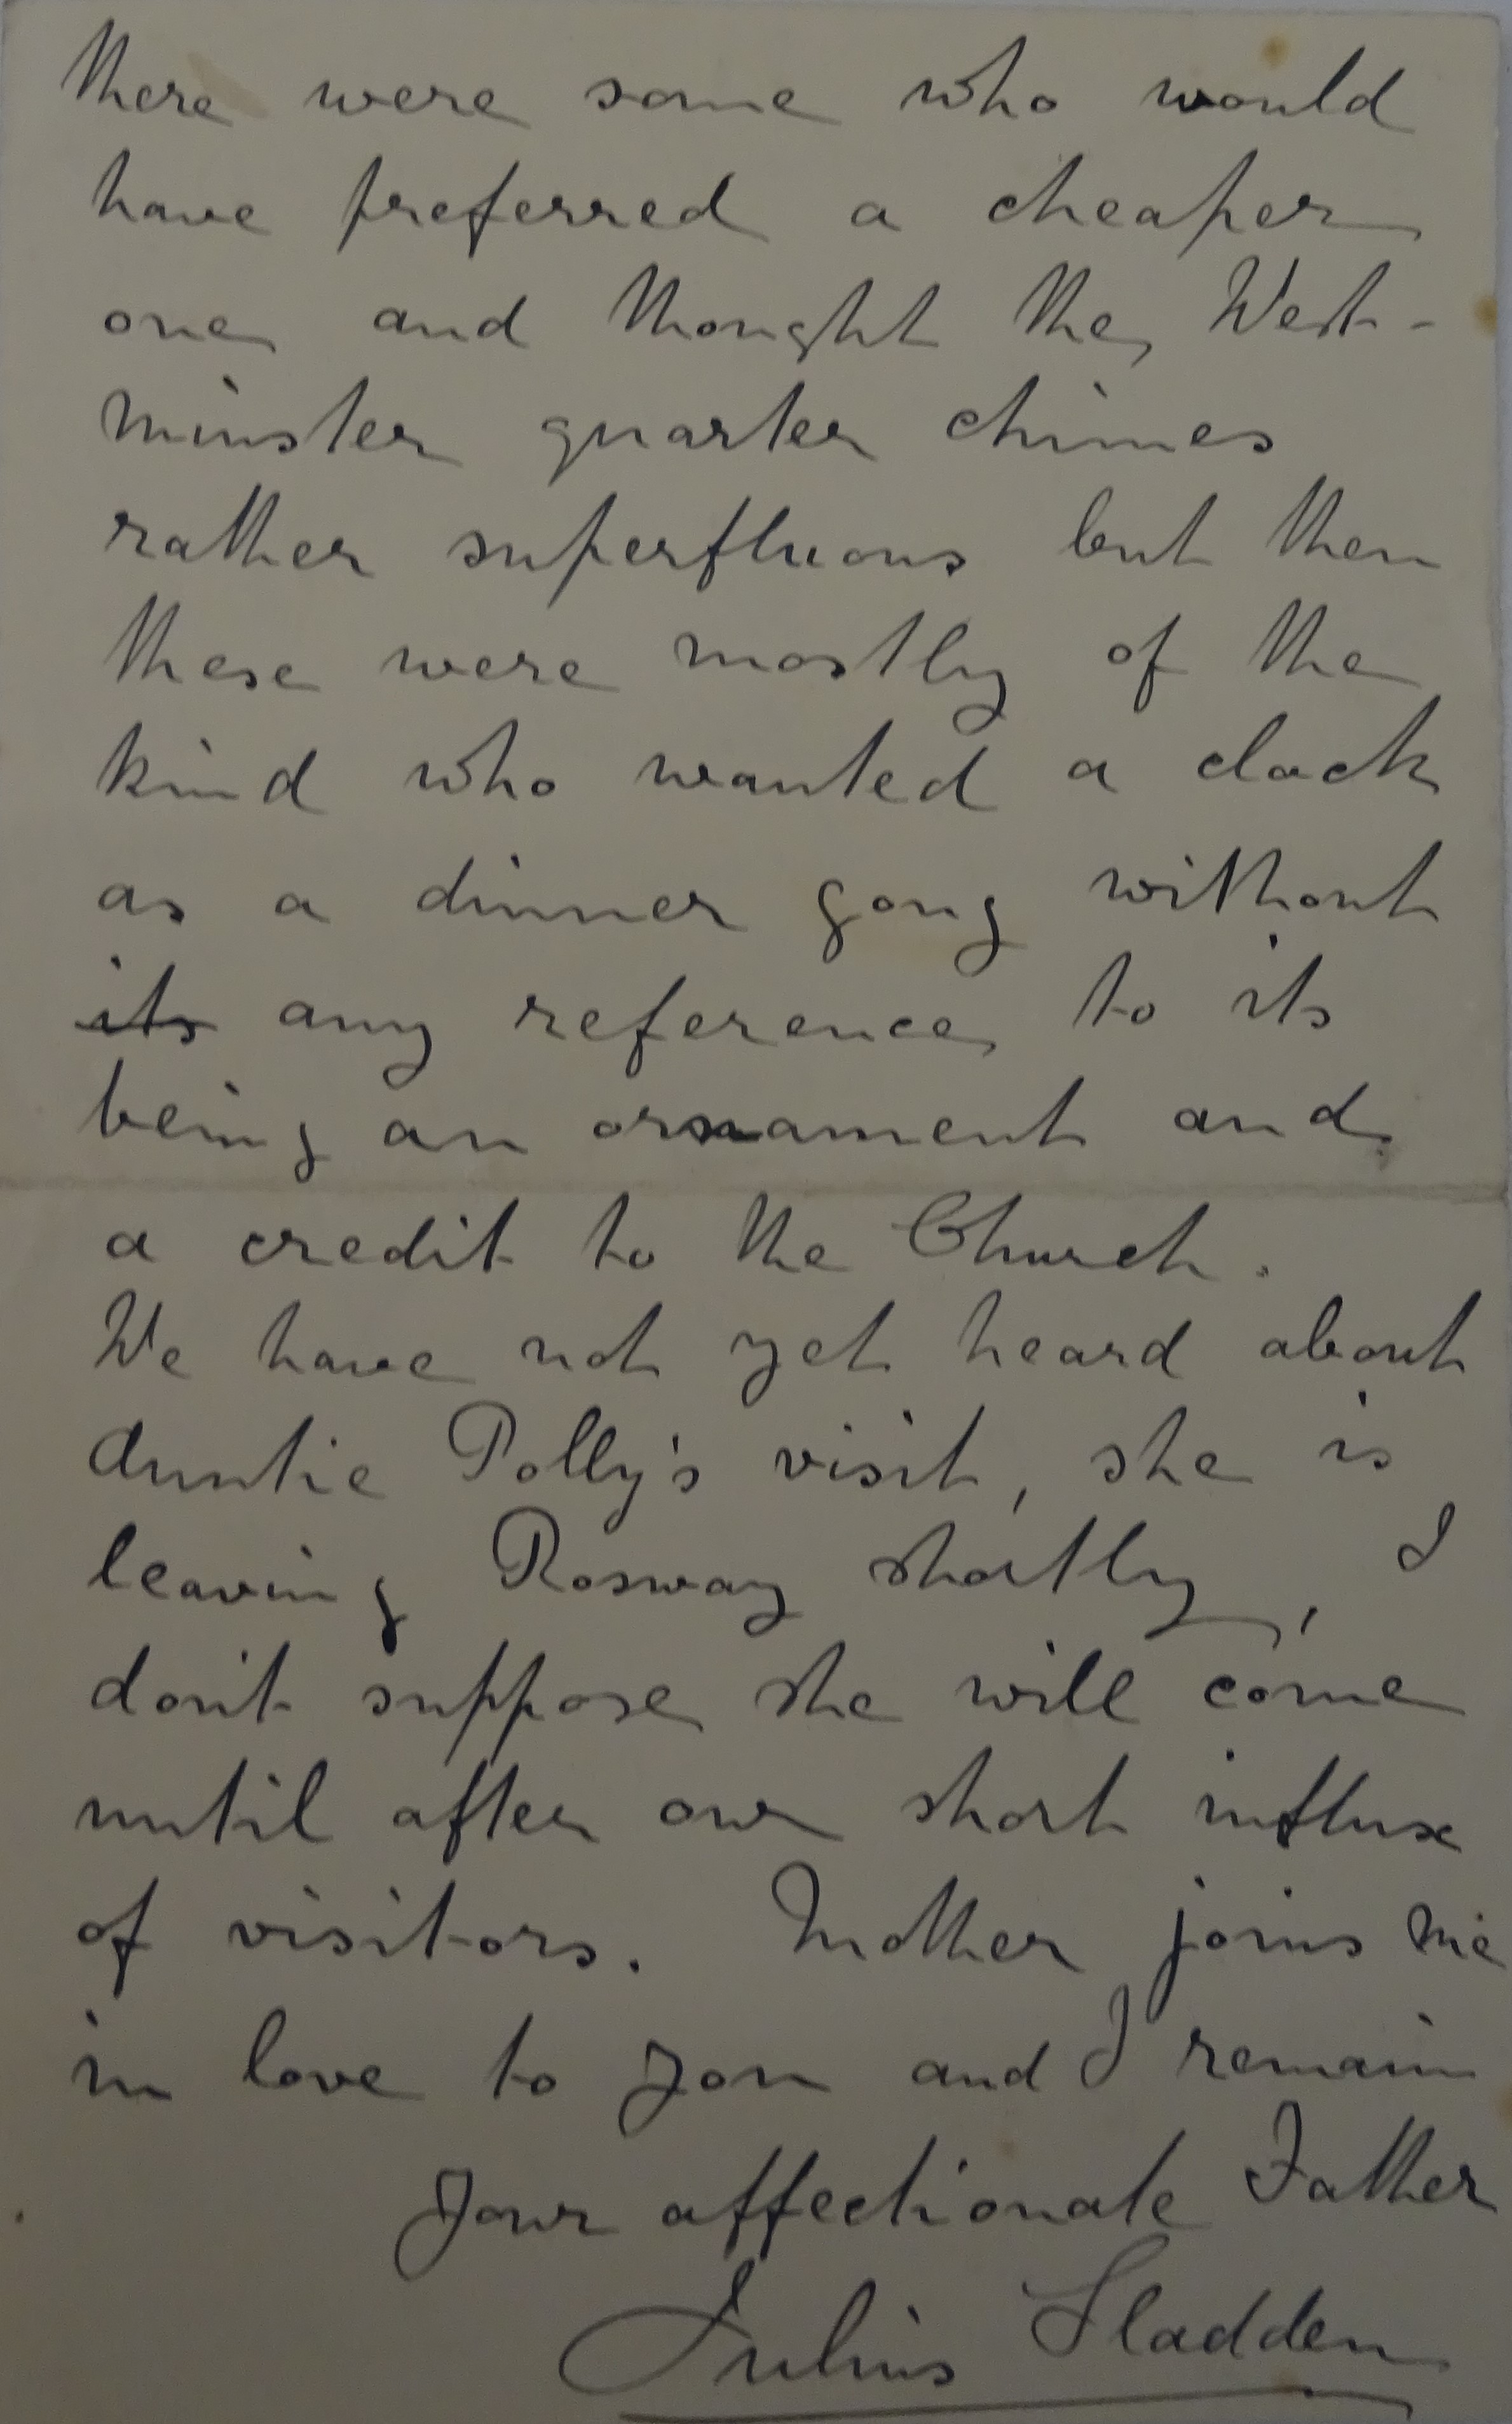 there were some who would
have preferred a cheaper
one and thought the West-
minster quarter chimes
rather superfluous but then
these were mostly of the
kind who wanted a clock
as a dinner gong without
its any reference to its
being an ornament and
a credit to the Church.
We have not yet heard about
Auntie Polly's visit, she is
leaving Rosway shortly, I
don't suppose she will come
until after our short influx
of visitors. Mother joins me
in love to you and I remain
Your affectionate Father
Julius Sladden